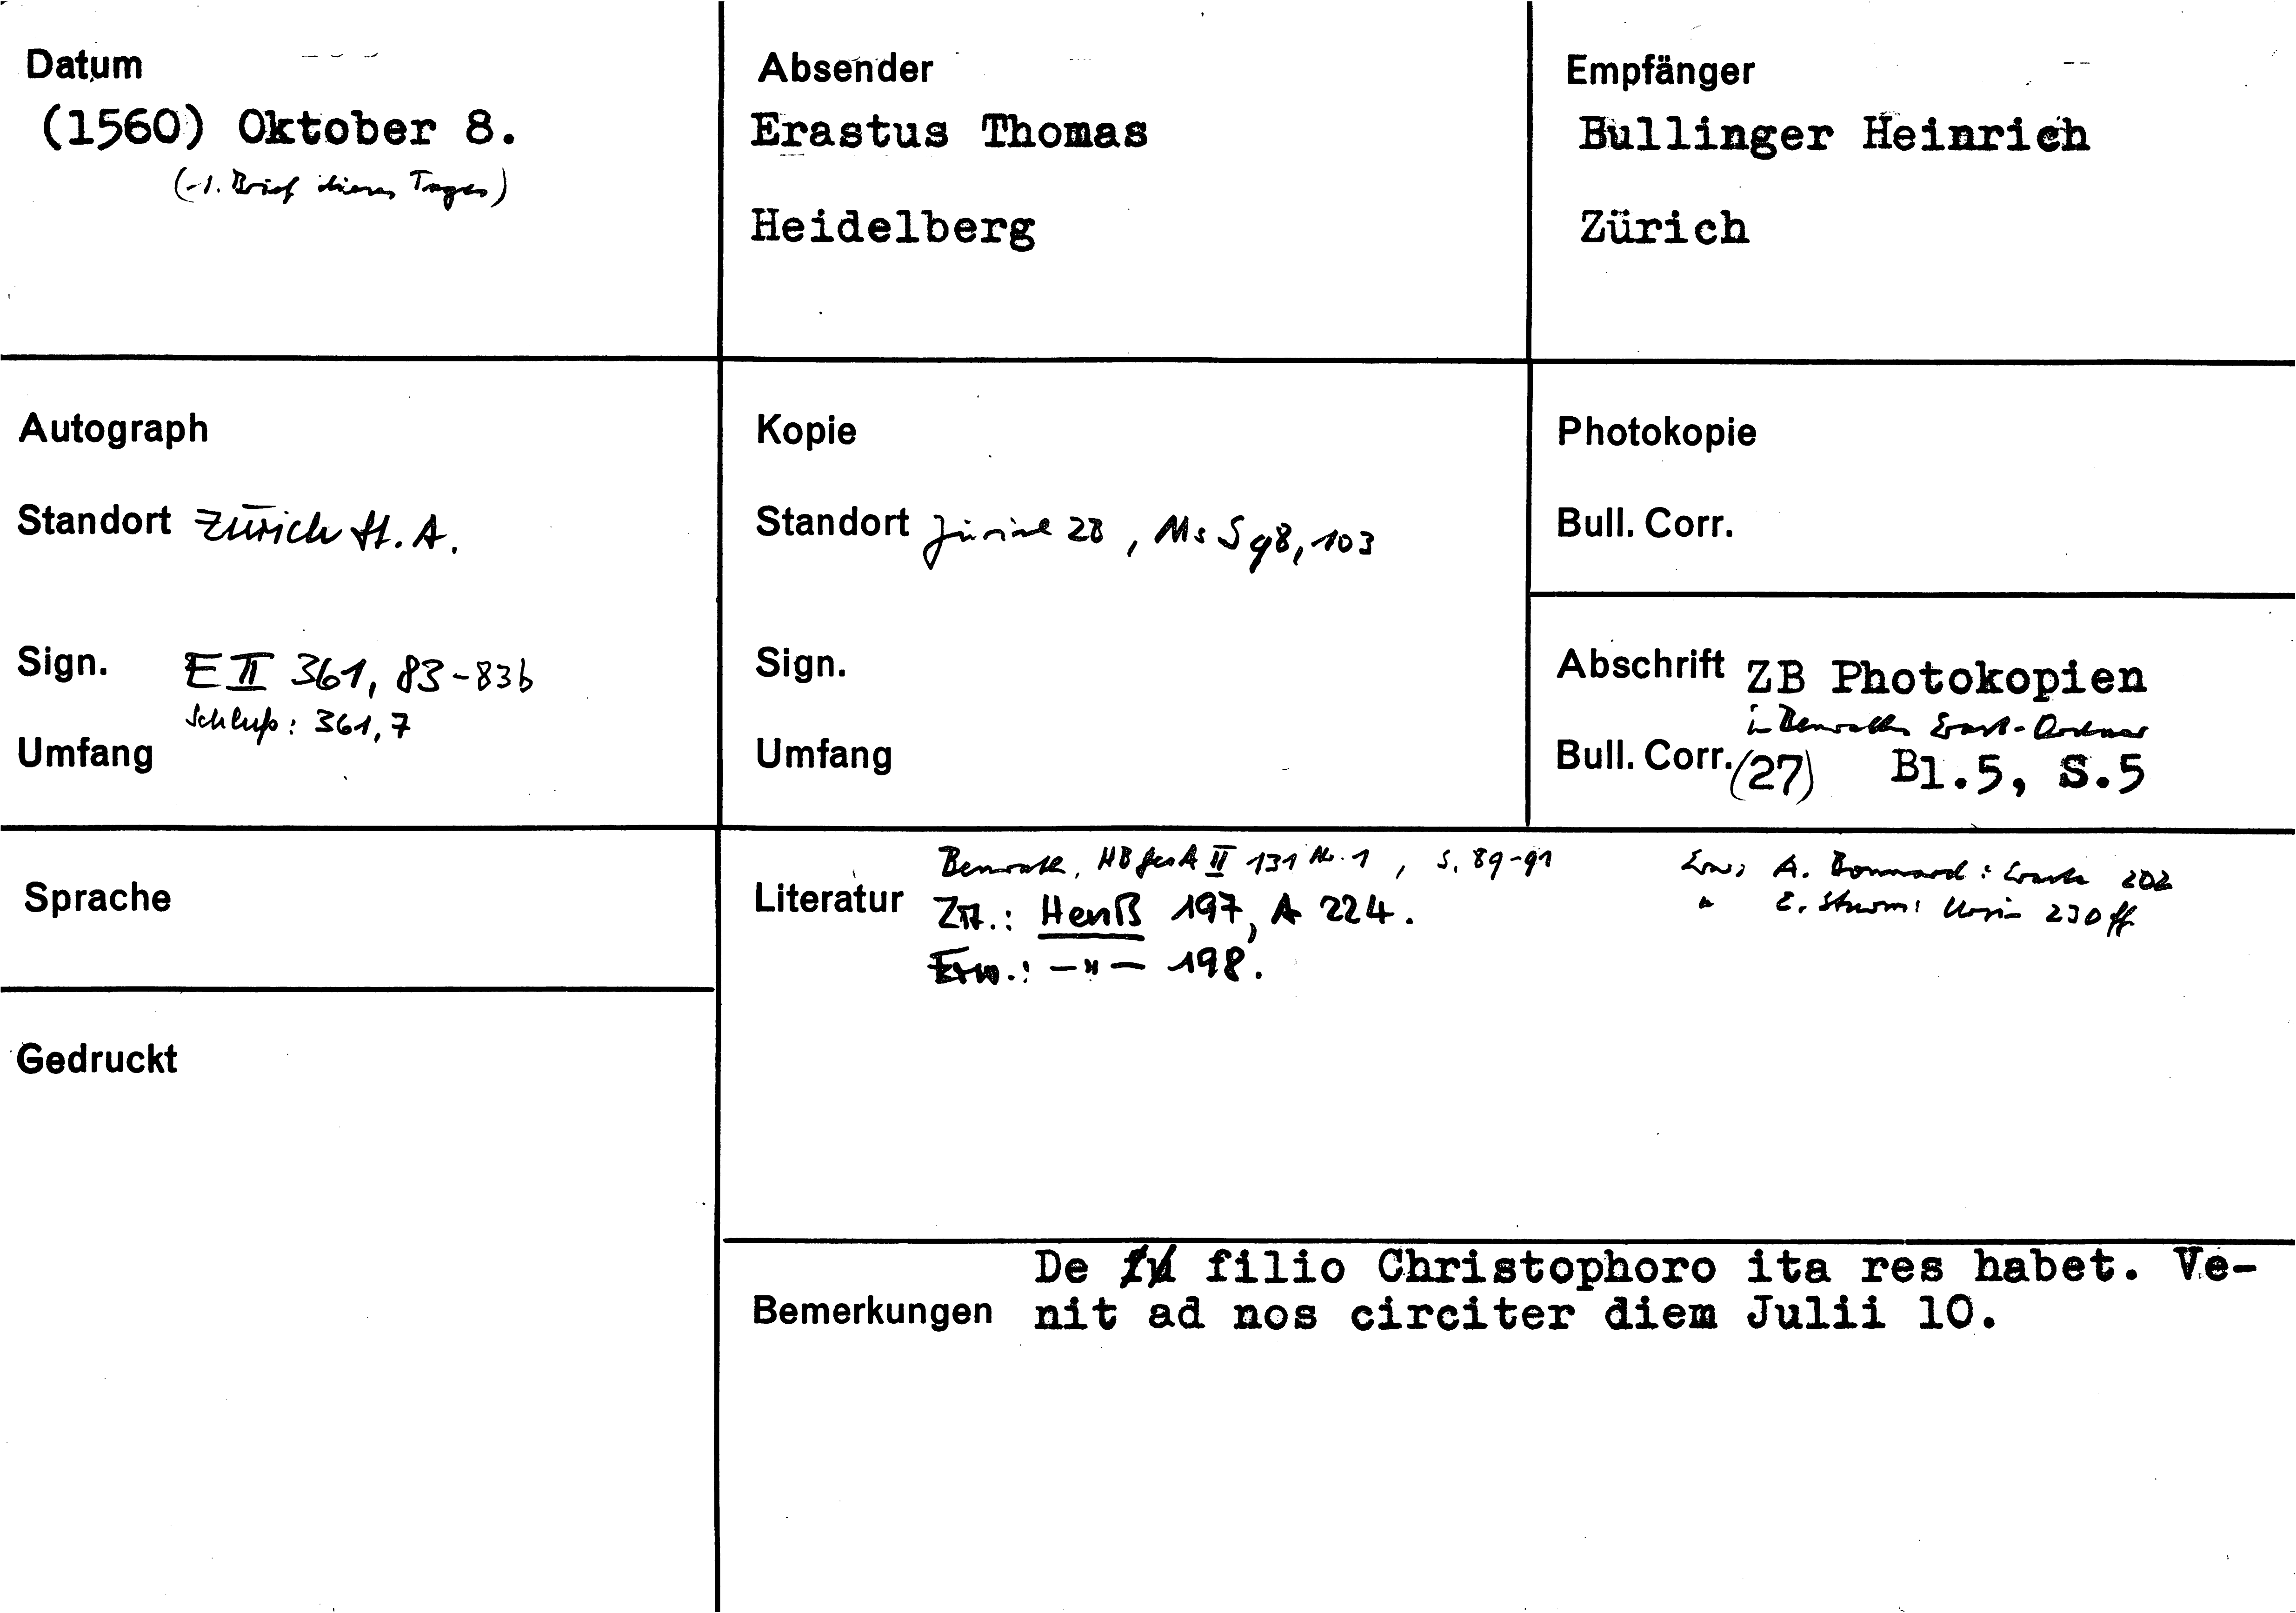 Datum
(1560) Oktober 8.
(-1. Brief dieses Tages)
Absender
Erastus Thomas
Heidelberg
Empfänger
Bullinger Heinrich
Zürich
Autograph
Standort Zürich St. A.
Sign. E II 361, 83-83b
Schluß: 361,7
Umfang
Kopie
Standort Zürich ZB, Ms S 98, 103
Sign.
Umfang
Photokopie
Bull. Corr.
Abschrift ZB Photokopien
in Benraths Erast-Ordner
Bull. Corr. (27) Bl.5, S.5
Sprache
Gedruckt
Literatur
Benrath, HBGesA II 131 Nr. 1, S. 89-91
Zit.: Henß 197, A 224.
Erw.: -"- 198.
Erw: A. Bonnard: Eraste 202
" E. Sturm: Ursin 230ff
Bemerkungen
De filio Christophoro ita res habet. Ve-
nit ad nos circiter diem Julii 10.